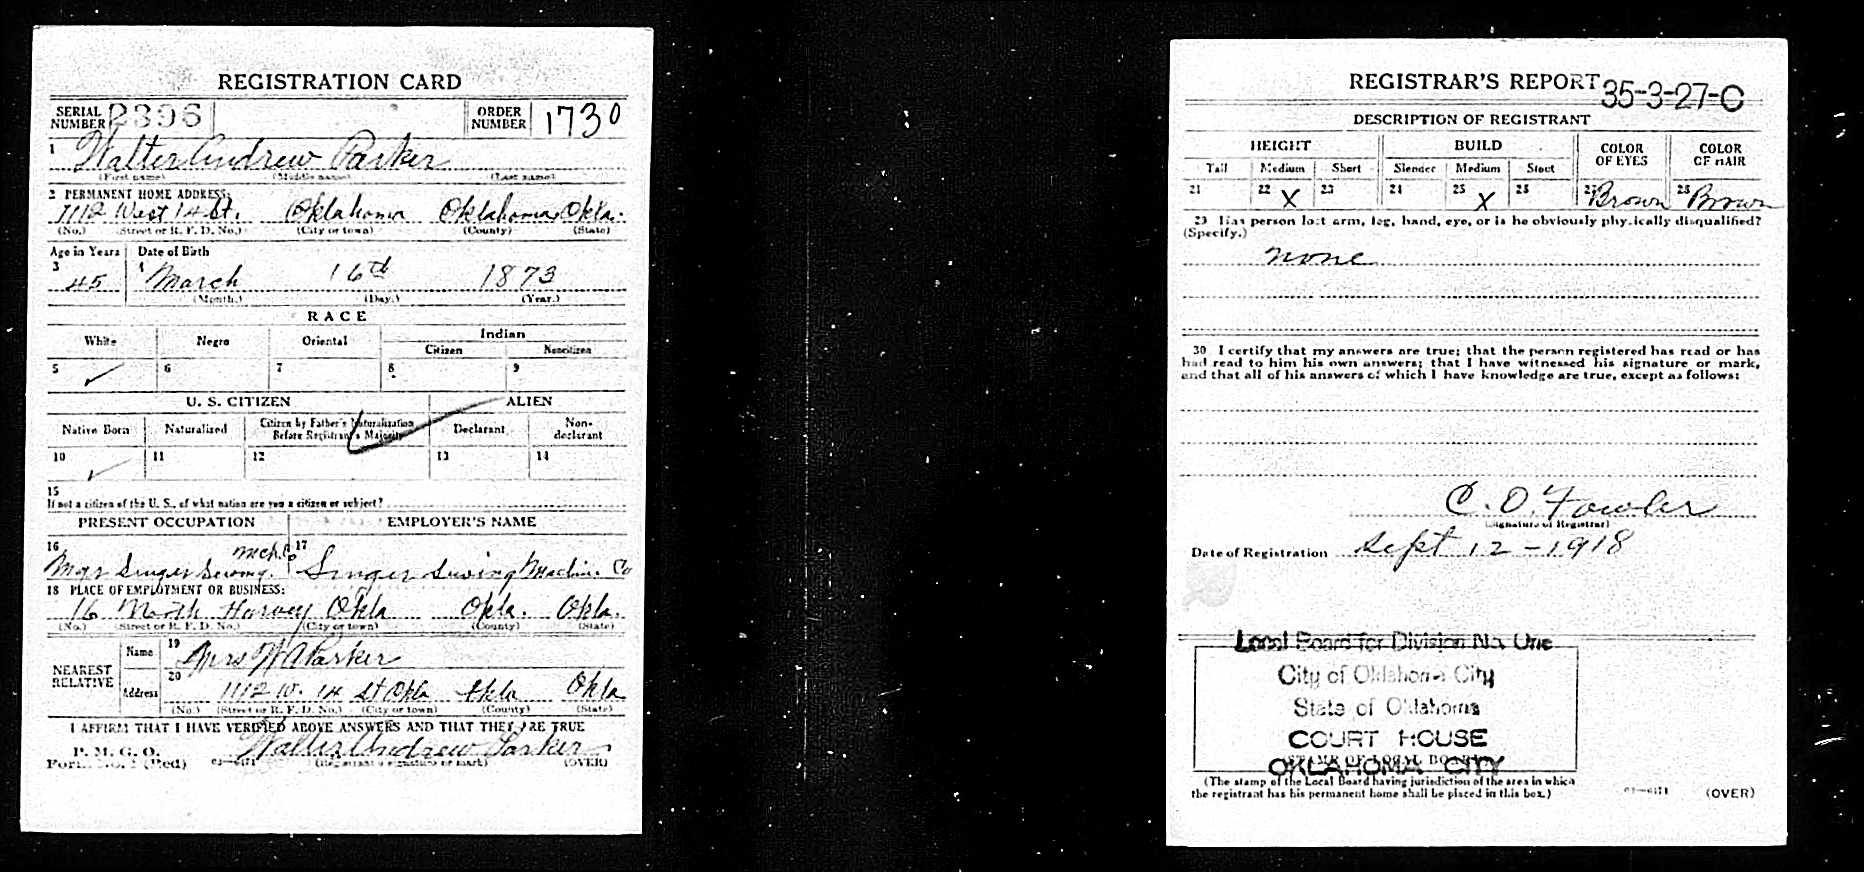 REGISTRATION CARD
SERIAL NUMBER 2396 ORDER NUMBER 1730
1 Walter Andrew Parker
(First name) (Middle name) (Last name)
2 PERMANENT HOME ADDRESS:
1112 West 14 St. Oklahoma Oklahoma Okla.
(No.) (Street or R. F. D. No.) (City or town) (County) (State)
Age in Years Date of Birth
3 45 4 March 16th 1873
(Month.) (Day.) (Year.)
RACE
White Negro Oriental Indian
Citizen Noncitizen
5 ✓ 6 7 8 9
U. S. CITIZEN ALIEN
Native Born Naturalized Citizen by Father's Naturalization Before Registrant's Majority Declarant Non-declarant
10 ✓ 11 12 13 14
15
If not a citizen of the U. S., of what nation are you a citizen or subject?
PRESENT OCCUPATION EMPLOYER'S NAME
16 Mgr Singer Sewing Mch. Co 17 Singer Sewing Machine Co
18 PLACE OF EMPLOYMENT OR BUSINESS:
16 North Harvey Okla Okla. Okla.
(No.) (Street or R. F. D. No.) (City or town) (County) (State)
NEAREST RELATIVE
Name 19 Mrs W A Parker
Address 20 1112 W. 14 St Okla Okla Okla
(No.) (Street or R. F. D. No.) (City or town) (County) (State)
I AFFIRM THAT I HAVE VERIFIED ABOVE ANSWERS AND THAT THEY ARE TRUE
P. M. G. O.
Form No. 1 (Red) Walter Andrew Parker
(Registrant's signature or mark) (OVER)
REGISTRAR'S REPORT 35-3-27-C
DESCRIPTION OF REGISTRANT
HEIGHT BUILD COLOR OF EYES COLOR OF HAIR
Tall Medium Short Slender Medium Stout
21 22 X 23 24 25 X 26 27 Brown 28 Brown
29 Has person lost arm, leg, hand, eye, or is he obviously physically disqualified?
(Specify.)
None
30 I certify that my answers are true; that the person registered has read or has
had read to him his own answers; that I have witnessed his signature or mark,
and that all of his answers of which I have knowledge are true, except as follows:
C. O. Fowler
(Signature of Registrar)
Date of Registration Sept 12-1918
Local Board for Division No. One
City of Oklahoma City
State of Oklahoma
COURT HOUSE
STAMP OF LOCAL BOARD
OKLAHOMA CITY
(The stamp of the Local Board having jurisdiction of the area in which
the registrant has his permanent home shall be placed in this box.)
(OVER)